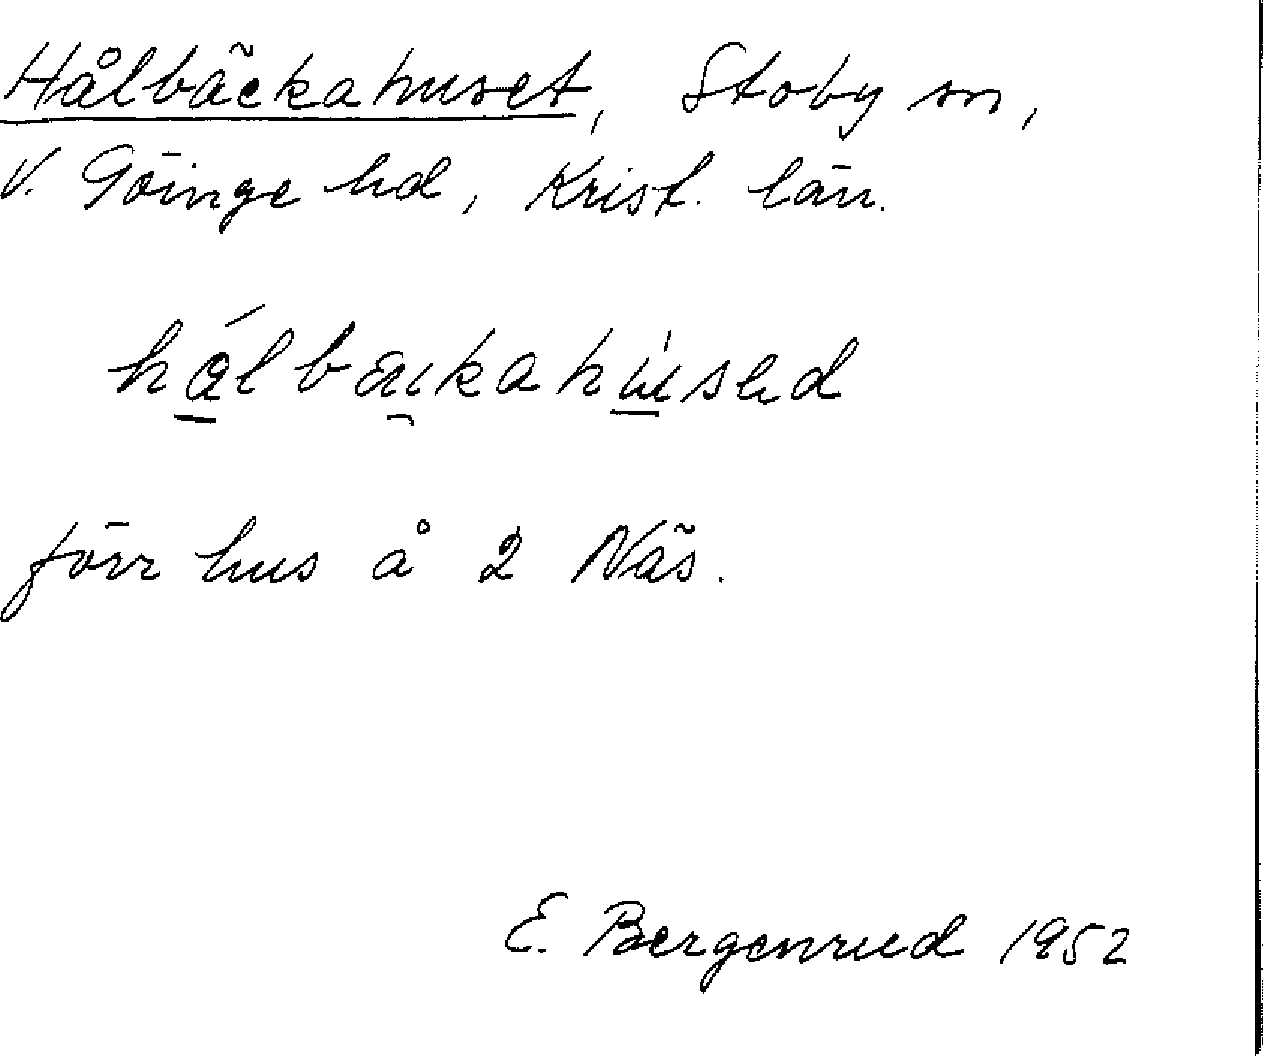 Hålbäckahuset, Stoby sn,
V. Göinge hd, Krist. län.
hålbäukahüsed
förr hus å 2 Näs.
E. Bergenrud 1952